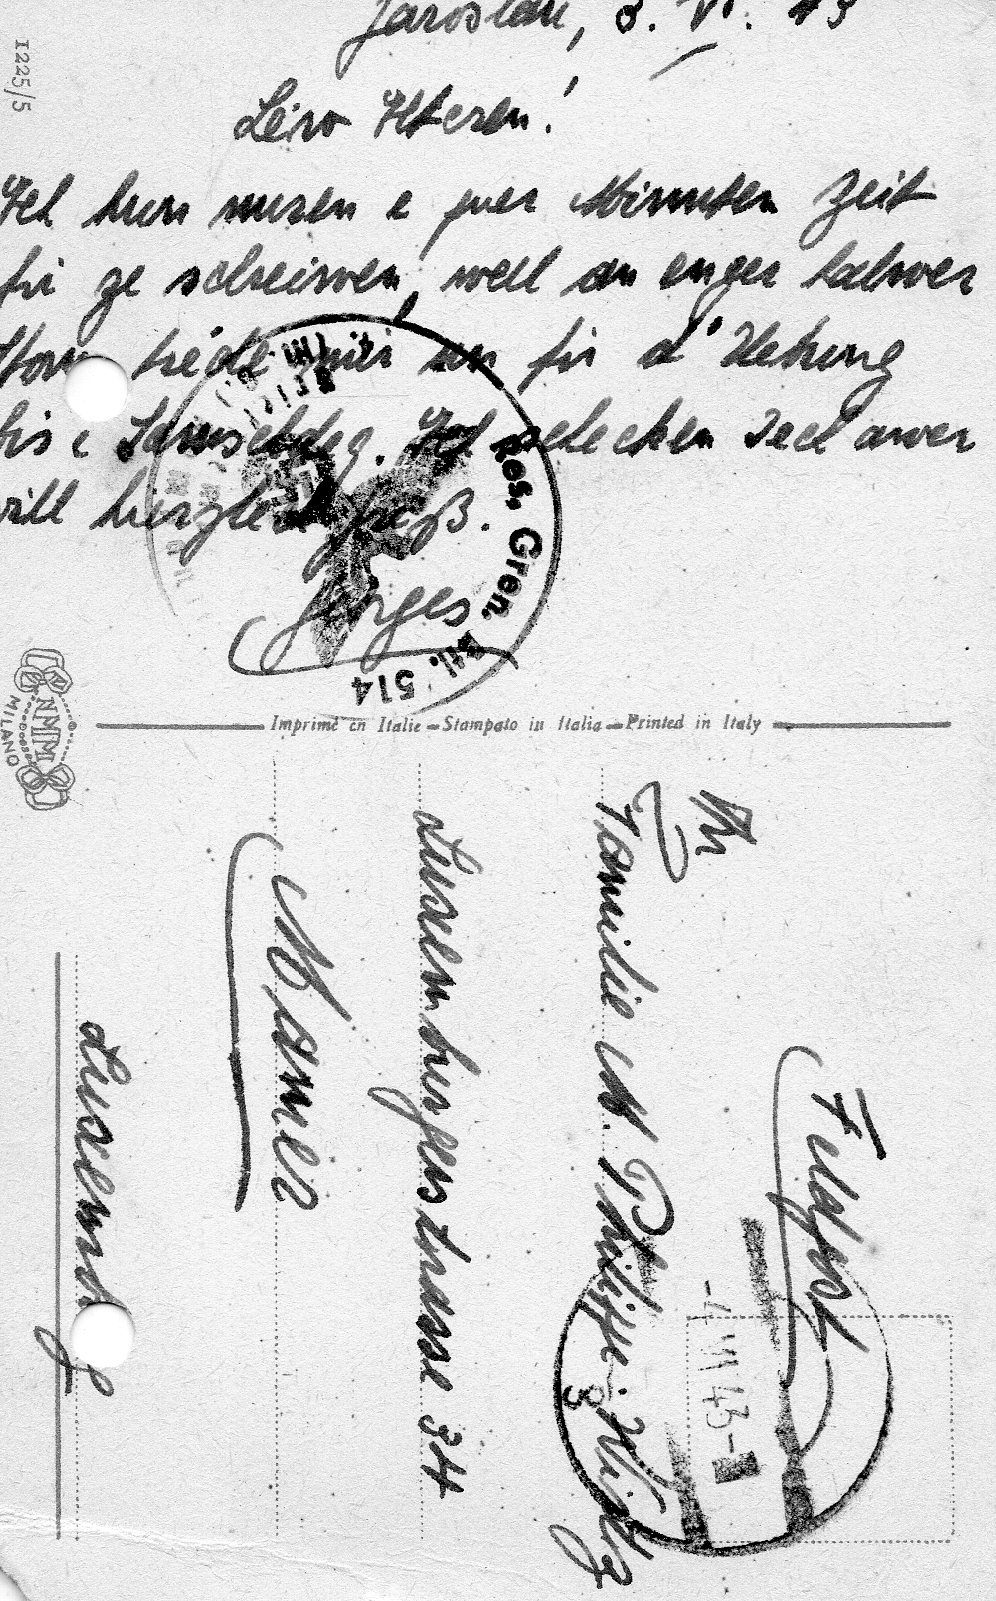 Jaroslau, 3. VI. 43
Léiv Elteren!
Ech hun nuren e puer Minuten Zeit
fir ze schreiwen, well an enger halwer
Stonn trëde mir un fir d'Uebung
bis e Samschdeg. Ech schecken Iech awer
vill häerzlech Gréiß.
Georges
Res. Gren. Btl. 514
1225/5
NMM
MILANO
Imprimé en Italie – Stampato in Italia – Printed in Italy
Feldpost
-4.VI.43-
An
Familie M. Philippe-Wirtz
Luxemburgerstrasse 34
Mamer
Luxemburg